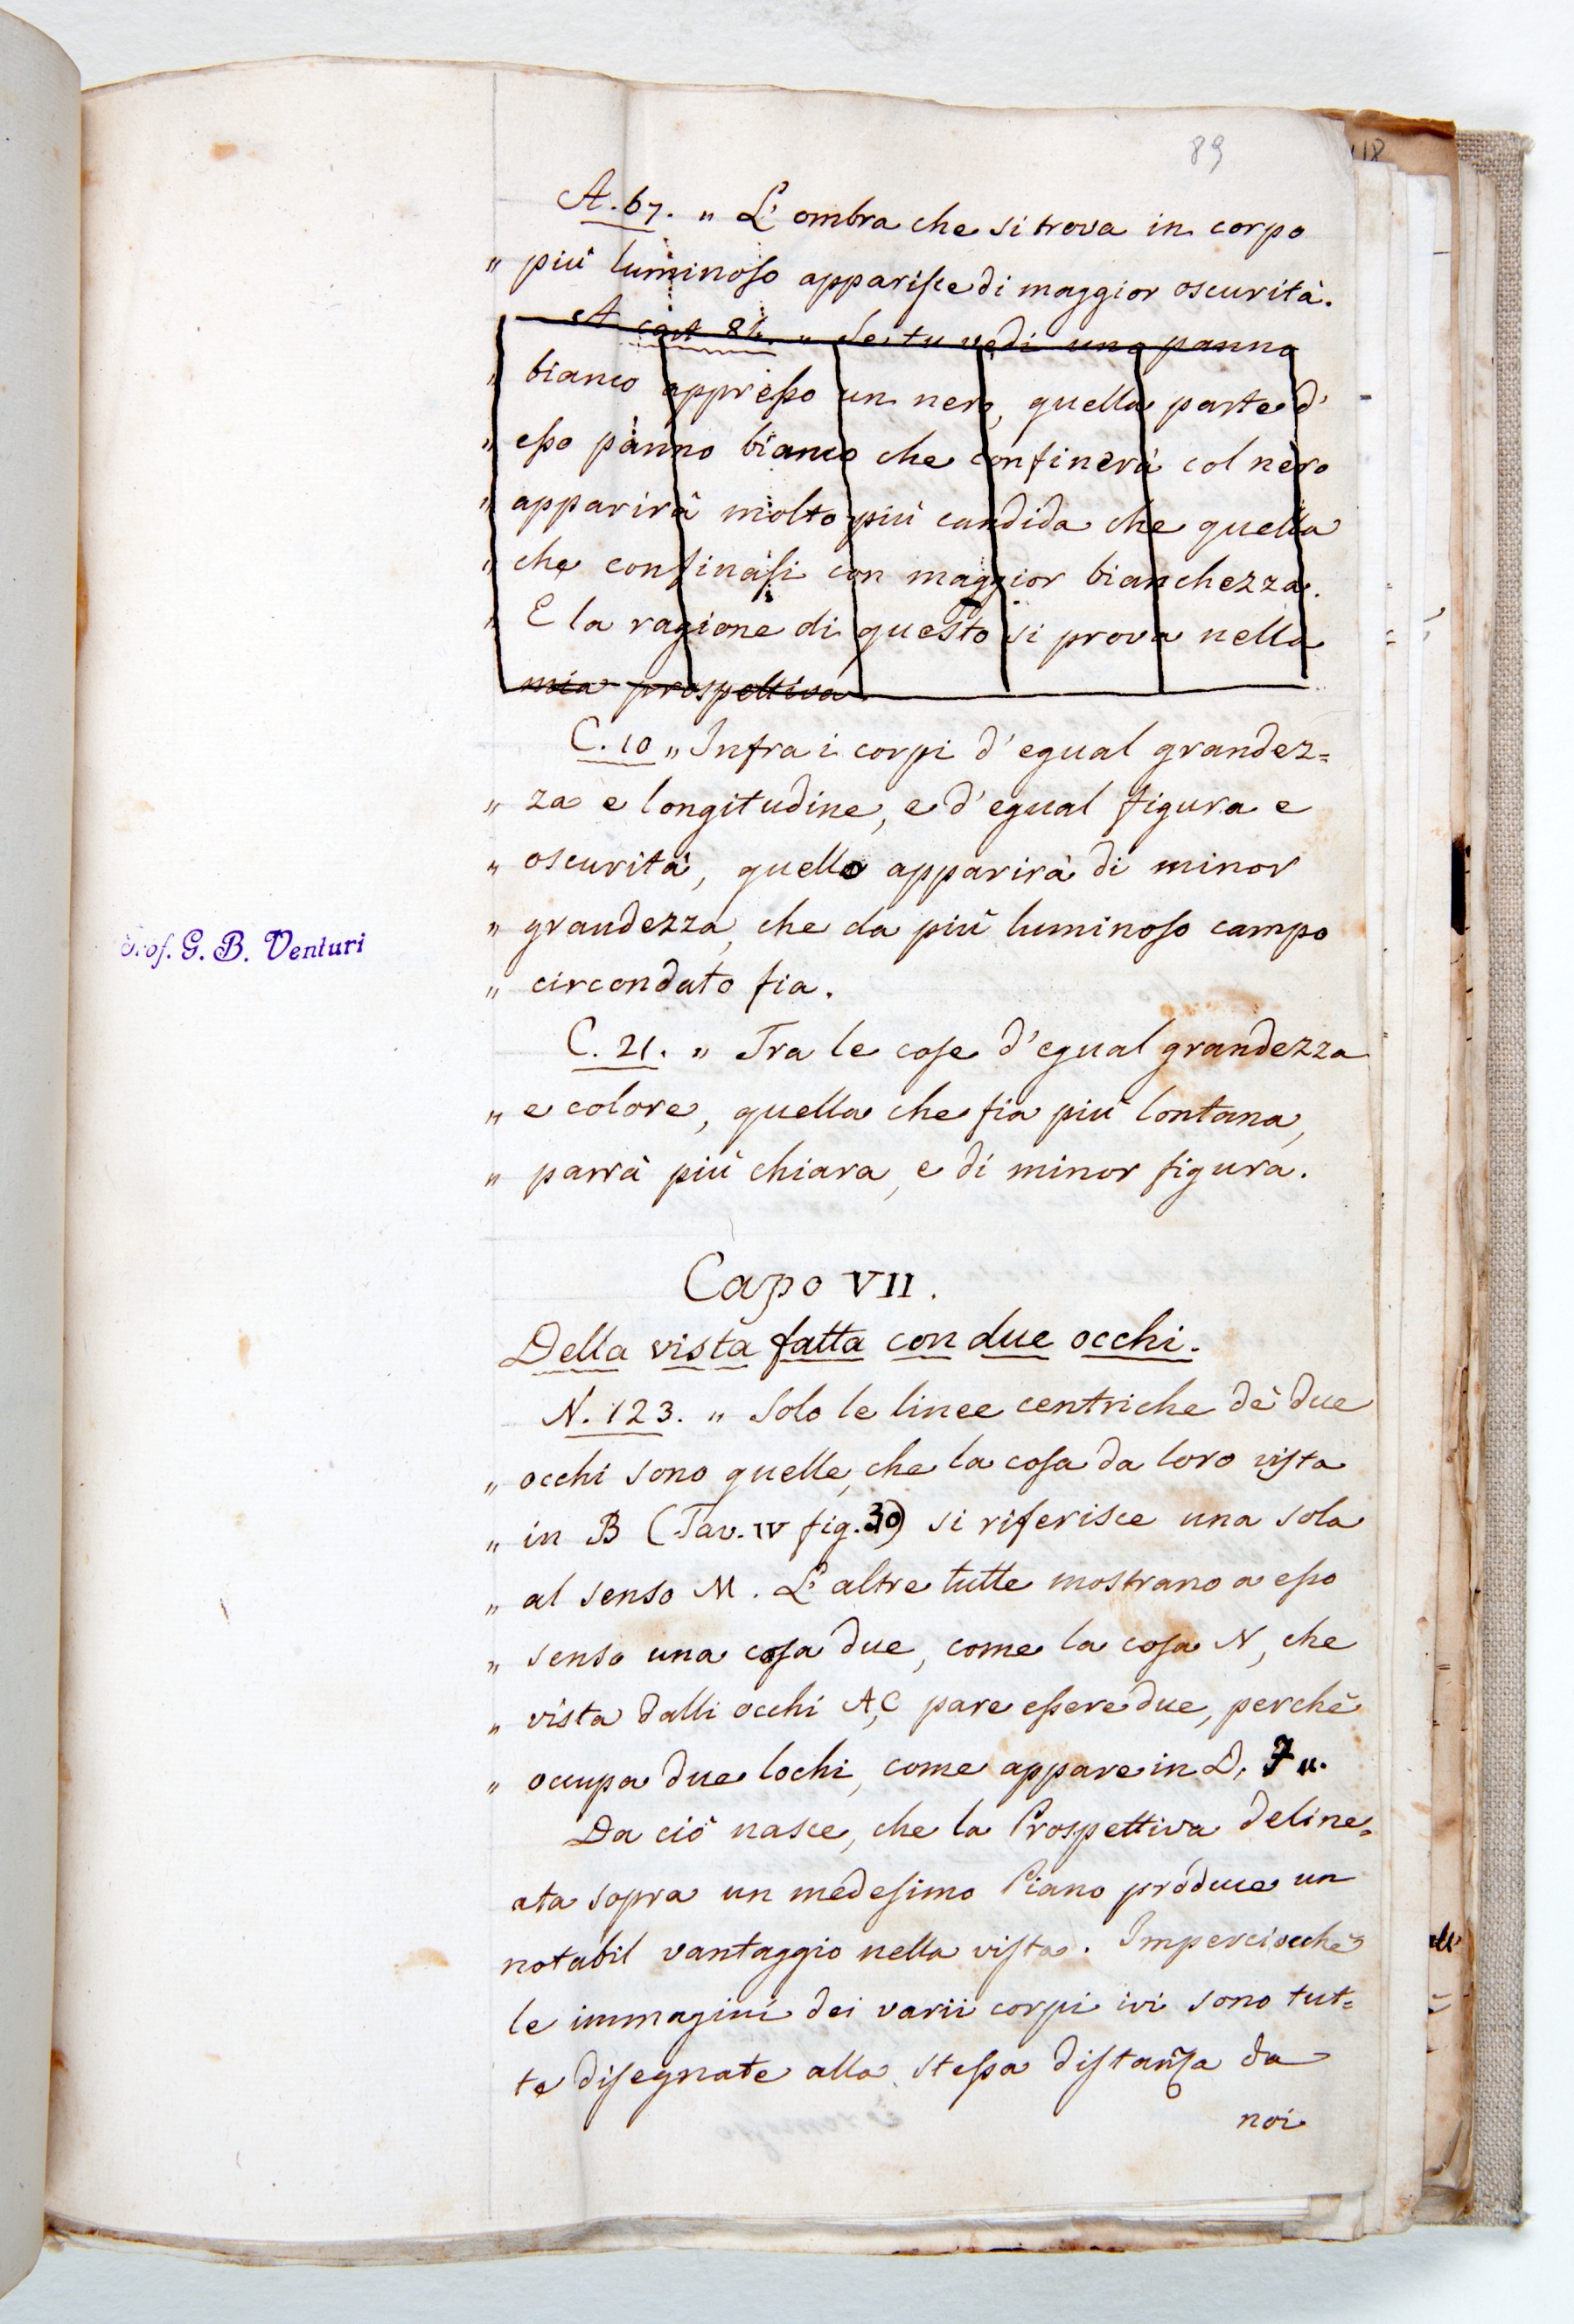 89
118
A. 67. „ L'ombra che si trova in corpo
„ più luminoso apparisce di maggior oscurità.
A cart 84. „ Se tu vedi uno panno
„ bianco appresso un nero, quella parte d'
„ esso panno bianco che confinerà col nero
„ apparirà molto più candida che quella
„ che confinasi con maggior bianchezza.
„ E la ragione di questo si prova nella
mia prospettiva
C. 10 „ Infra i corpi d'egual grandez=
„ za e longitudine, e d'egual figura e
„ oscurità, quello apparirà di minor
„ grandezza, che da più luminoso campo
„ circondato fia.
Prof. G. B. Venturi
C. 21. „ Tra le cose d'egual grandezza
„ e colore, quella che fia più lontana,
„ parrà più chiara, e di minor figura.
Capo VII.
Della vista fatta con due occhi.
N. 123. „ Solo le linee centriche de' due
„ occhi sono quelle, che la cosa da loro vista
„ in B (Tav. IV fig. 30) si riferisce una sola
„ al senso M. L'altre tutte mostrano a esso
„ senso una cosa due, come la cosa N, che
„ vista dalli occhi A, C pare essere due, perchè
„ occupa due lochi, come appare in D,
Da ciò nasce, che la Prospettiva deline=
ata sopra un medesimo Piano produce un
notabil vantaggio nella vista. Imperciocchè
le immagini dei varii corpi ivi sono tut=
te disegnate alla stessa distanza da
noi